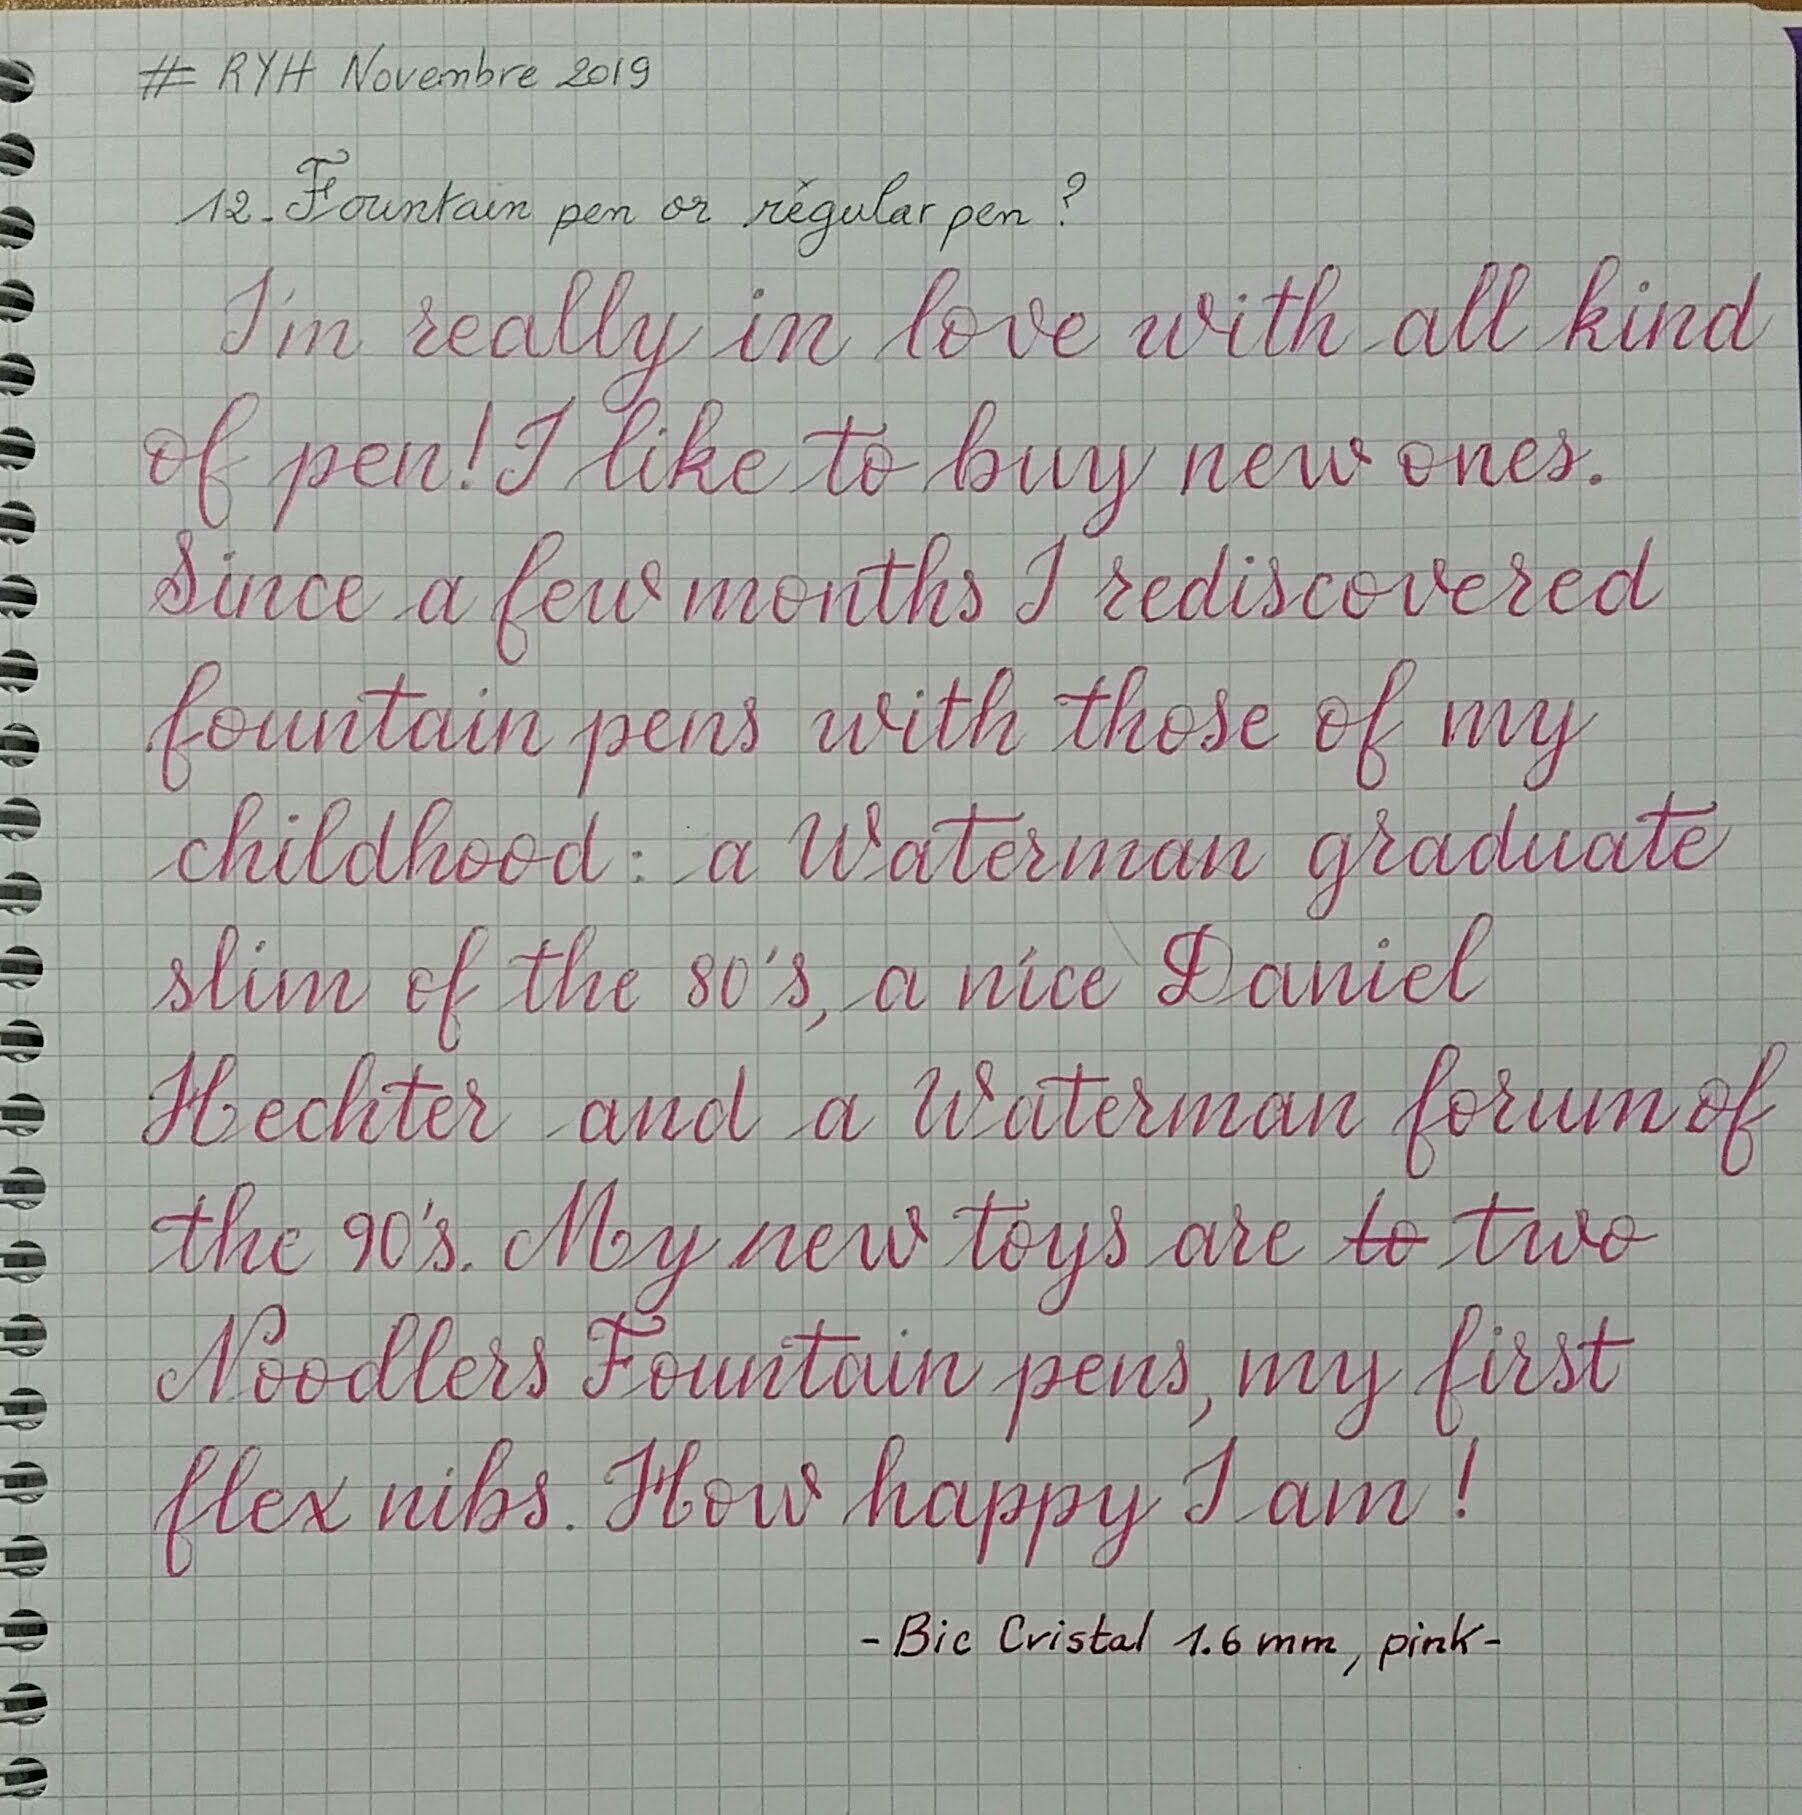 # RYH Novembre 2019
12. Fountain pen or régular pen ?
I'm really in love with all kind
of pen! I like to buy new ones.
Since a few months I rediscovered
fountain pens with those of my
childhood: a Waterman graduate
slim of the 80's, a nice Daniel
Hechter and a Waterman forum of
the 90's. My new toys are to two
Noodlers Fountain pens, my first
flex nibs. How happy I am !
- Bic Cristal 1.6 mm, pink -